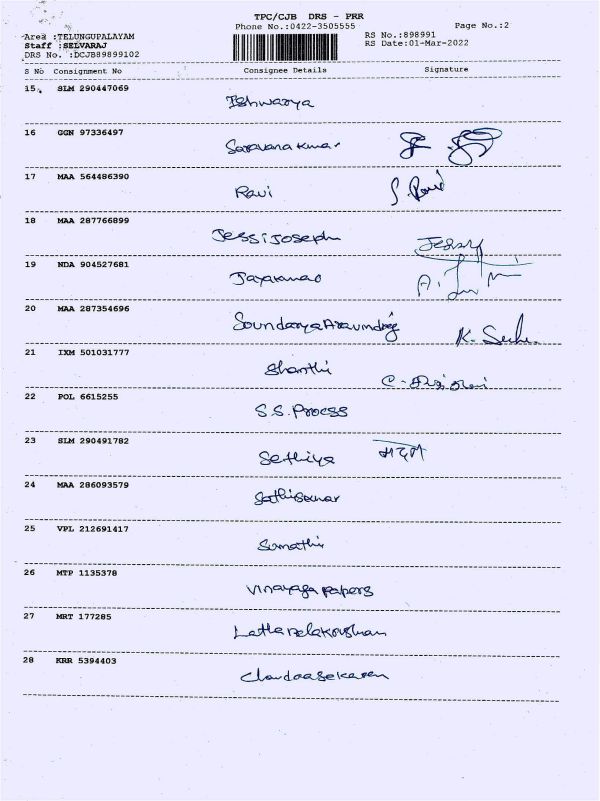 TPC/CJB DRS - PRR
Phone No.:0422-3505555 Page No.:2
Area :TELUNGUPALAYAM RS No.:898991
Staff :SELVARAJ RS Date:01-Mar-2022
DRS No. :DCJB89899102
S No Consignment No Consignee Details Signature
15 SLM 290447069
Ishwarya
16 GGN 97336497
Saravanakumar
17 MAA 564486390
Ravi S. Ravi
18 MAA 287766899
Jessi Joseph Jessy
19 NDA 904527681
Jayakumar
20 MAA 287354696
Soundarya K.
21 IXM 501031777
Shanthi
22 POL 6615255
S.S. Process
23 SLM 290491782
Sethiya
24 MAA 286093579
Sathiskumar
25 VPL 212691417
Sumathi
26 MTP 1135378
Vinayaga Papers
27 MRT 177285
Latha
28 KRR 5394403
Chandrasekaran